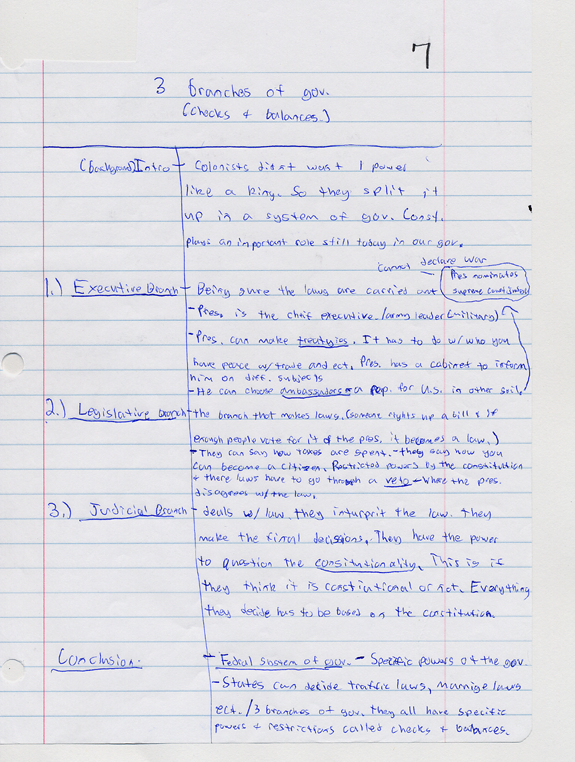 7
3 branches of gov.
(checks & balances.)
(background) Intro - Colonists didnt want 1 power
like a king. So they split it
up in a system of gov. Const.
plays an important role still today in our gov.
Cannot declare war
Pres nominates
supreme court
1.) Executive Branch - Being sure the laws are carried out
- Pres. is the cheif executive. /army leader (military)
- Pres. can make treatyies. It has to do w/ who you
have peace w/ trade and ect. Pres. has a cabinet to inform
him on diff. subjects
- He can choose ambassadors a rep. for U.S. in other soil.
2.) Legislative branch - the branch that makes laws. (someone rights up a bill & if
enough people vote for it & the pres. it becomes a law.)
- They can say how taxes are spent. - they say how you
can become a citizen. Restricted powers by the constitution
& there laws have to go through a veto - where the pres.
disagrees w/ the law.
3.) Judicial Branch - deals w/ law. they interprit the law. they
make the final decissions. They have the power
to question the consitutionality. This is if
they think it is constiutional or not. Everything
they decide has to be based on the constitution.
Conclusion. - Fedral system of gov. - Specific powers of the gov.
- States can decide traffic laws, marriage laws
ect. / 3 branches of gov. they all have specific
powers & restrictions called checks & balances.